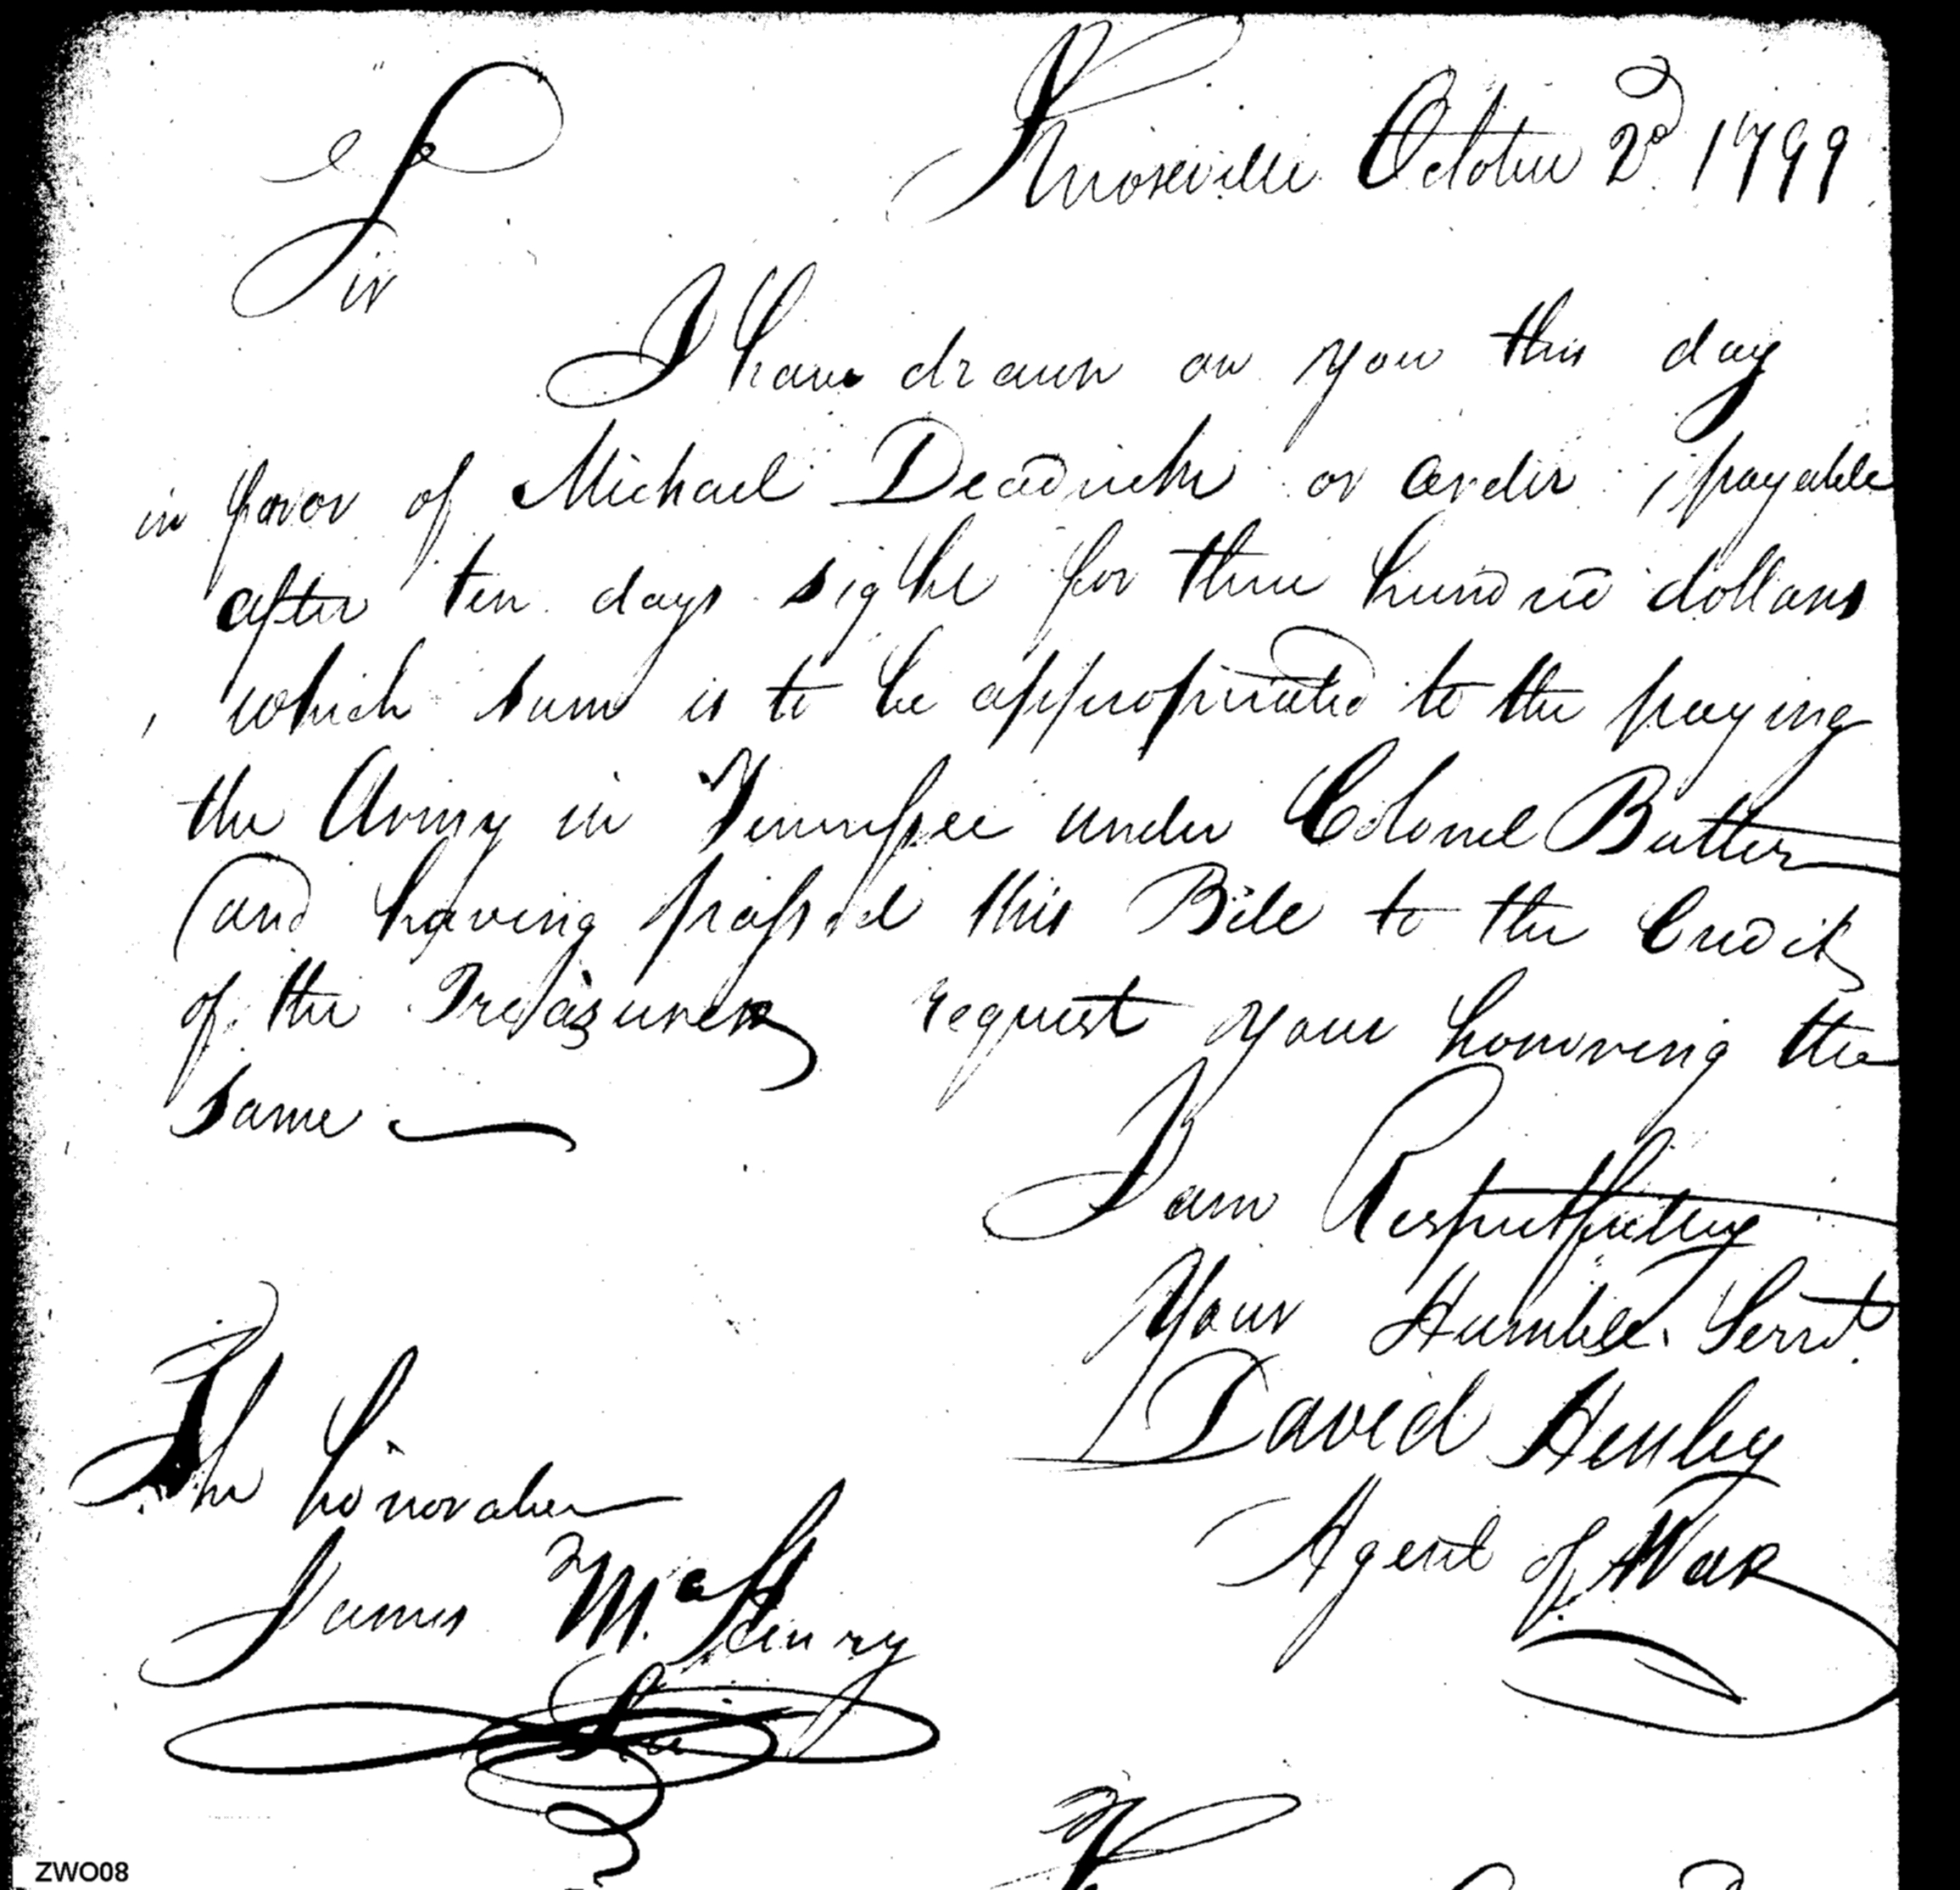 Knoxville October 2d 1799
Sir
I have drawn on you this day
in favor of Michael Deadrick or order, payable
after ten days sight for three hundred dollars
, which sum is to be appropriated to the paying
the Army in Tennessee under Colonel Butler
and having passed this Bill to the Credit
of the Treasurer request your honoring the
same —
I am Respectfully
Your Humble Servt.
David Henley
Agent of War
The honorable
James McHenry
ZWO08